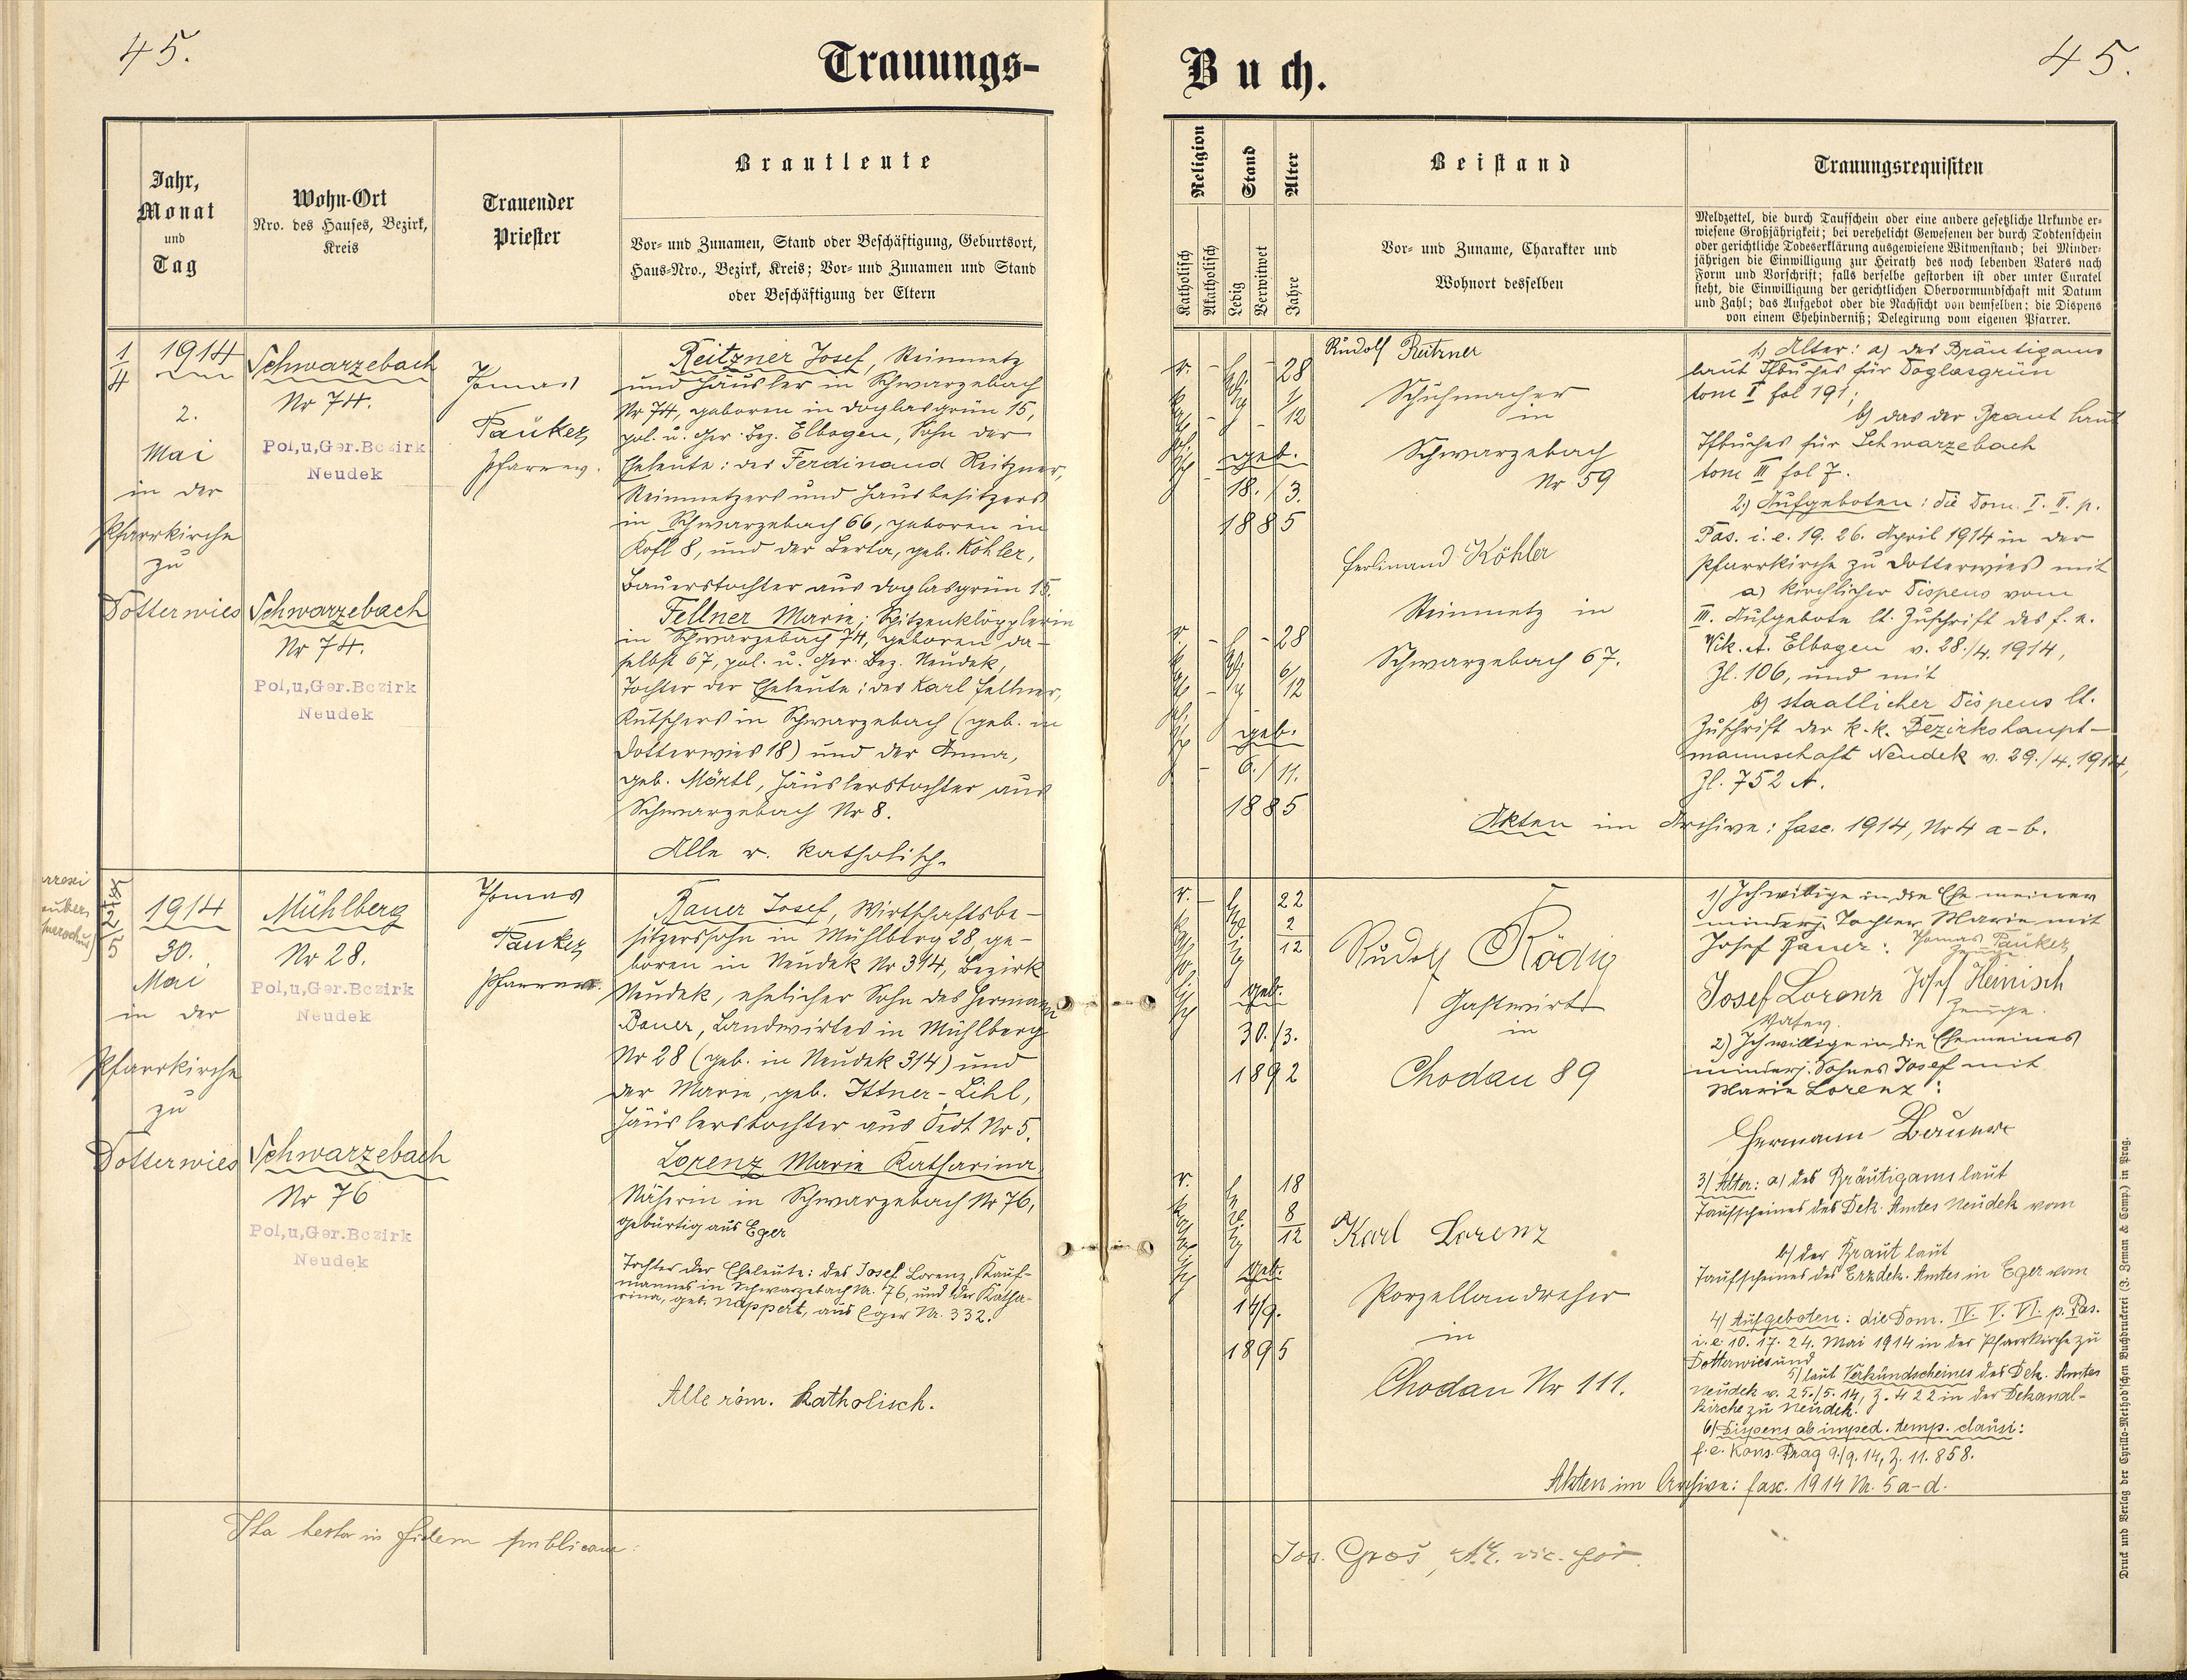 45.
Trauungs-
Jahr,
Monat
und
Tag
Wohn-Ort
Nro. des Hauses, Bezirk,
Kreis
Trauender
Priester
Brautleute
Vor- und Zunamen, Stand oder Beschäftigung, Geburtsort,
Haus-Nro., Bezirk, Kreis; Vor- und Zunamen und Stand
oder Beschäftigung der Eltern
1/4
1914
2.
Mai
in der
Pfarrkirche
zu
Dotterwies
Schwarzebach
Nr 74.
Pol,u,Ger.Bezirk
Neudek
Schwarzebach
Nr 74.
Pol,u,Ger.Bezirk
Neudek
Thomas
Pauker
Pfarrer.
Reitzner Josef, Steinmetz
und Häusler in Schwarzebach
Nr 74, geboren in Doglasgrün 15,
pol. u. Ger. Bez. Elbogen, Sohn der
Eheleute: des Ferdinand Reitzner,
Steinmetzers und Hausbesitzers
in Schwarzebach 66, geboren in
Kofl 8, und der Berta, geb. Köhler,
Bauerstochter aus Doglasgrün 15.
Fellner Marie, Spitzenklöpplerin
in Schwarzebach 74, geboren da-
selbst 67, pol. u. Ger. Bez. Neudek,
Tochter der Eheleute: des Karl Fellner,
Kutschers in Schwarzebach (geb. in
Dotterwies 18) und der Anna,
geb. Mörtl, Häuslerstochter aus
Schwarzebach Nr 8.
Alle r. katholisch.
2/5
1914
30.
Mai
in der
Pfarrkirche
zu
Dotterwies
Mühlberg
Nr 28.
Pol,u,Ger.Bezirk
Neudek
Schwarzebach
Nr 76
Pol,u,Ger.Bezirk
Neudek
Thomas
Pauker
Pfarrer.
Bauer Josef, Wirtschaftsbe-
sitzerssohn in Mühlberg 28, ge-
boren in Neudek Nr 314, Bezirk
Neudek, ehelicher Sohn des Hermann
Bauer, Landwirtes in Mühlberg
Nr 28 (geb. in Neudek 314) und
der Marie, geb. Ittner-Lihl,
Häuslerstochter aus Nr 5.
Lorenz Marie Katharina
Näherin in Schwarzebach Nr 76,
gebürtig aus Eger
Tochter der Eheleute: des Josef Lorenz, Kauf-
mannes in Schwarzebach Nr. 76, und der Katha-
rina, geb. Nappert, aus Eger Nr. 332.
Alle röm. katholisch.
Ita testor in fidem publicam:
45.
Buch.
Religion
Stand
Alter
Katholisch
Akatholisch
Ledig
Verwitwet
Jahre
Beistand
Vor- und Zuname, Charakter und
Wohnort desselben
Trauungsrequisiten
Meldzettel, die durch Taufschein oder eine andere gesetzliche Urkunde er-
wiesene Großjährigkeit; bei verehelicht Gewesenen der durch Todtenschein
oder gerichtliche Todeserklärung ausgewiesene Witwenstand; bei Minder-
jährigen die Einwilligung zur Heirath des noch lebenden Vaters nach
Form und Vorschrift; falls derselbe gestorben ist oder unter Curatel
steht, die Einwilligung der gerichtlichen Obervormundschaft mit Datum
und Zahl; das Aufgebot oder die Nachsicht von demselben; die Dispens
von einem Ehehinderniß; Delegirung vom eigenen Pfarrer.
28
1/12
geb.
18./3.
1885
28
6/12
geb.
6./11.
1885
Rudolf Reitzner
Schuhmacher
in
Schwarzebach
Nr 59
Ferdinand Köhler
Steinmetz in
Schwarzebach 67.
1.) Alter: a) des Bräutigams
laut Tfbuches für Doglasgrün
tom I fol 191;
b) das der Braut laut
Tfbuches für Schwarzebach
tom III fol 7.
2.) Aufgeboten: die Dom. I. II. p.
Pas. i. e. 19. 26. April 1914 in der
Pfarrkirche zu Dotterwies mit
a) kirchlicher Dispens vom
III. Aufgebote lt. Zuschrift des f. e.
Vik. A. Elbogen v. 28./4. 1914,
Zl. 106, und mit
b) staatlicher Dispens lt.
Zuschrift der k. k. Bezirkshaupt-
mannschaft Neudek v. 29./4. 1914,
Zl. 752 A.
Akten im Archive: fasc. 1914, Nr 4 a-b.
22
2/12
geb.
30./3.
1892
18
8/12
geb.
14/9.
1895
Rudolf Rödig
Gastwirt
in
Chodau 89
Karl Lorenz
Porzellandreher
in
Chodau Nr 111.
1) Ich willige in die Ehe meiner
minderj. Tochter Marie mit
Josef Bauer: Thomas Pauker
Zeuge
Josef Lorenz Josef Heinisch
Vater. Zeuge.
2) Ich willige in die Ehe meines
minderj. Sohnes Josef mit
Marie Lorenz:
Hermann Bauer
3) Alter: a) des Bräutigams laut
Taufscheines des Dek. Amtes Neudek vom
b) der Braut laut
Taufscheines des Erzdek. Amtes in Eger vom
4) Aufgeboten: die Dom. IV. V. VI. p. Pas.
i. e. 10. 17. 24. Mai 1914 in der Pfarrkirche zu
Dotterwies und
5) laut Verkündscheines des Dek. Amtes
Neudek v. 25./5. 14, Z. 422 in der Dekanal-
kirche zu Neudek.
6) Dispens ab imped. temp. clausi:
f. e. Kons. Prag 9./9. 14, Z. 11.858.
Akten im Archive: fasc. 1914 Nr. 5 a-d.
Jos. Groš,
Druck und Verlag der Cyrillo-Method'schen Buchdruckerei (J. Zeman & Comp.) in Prag.